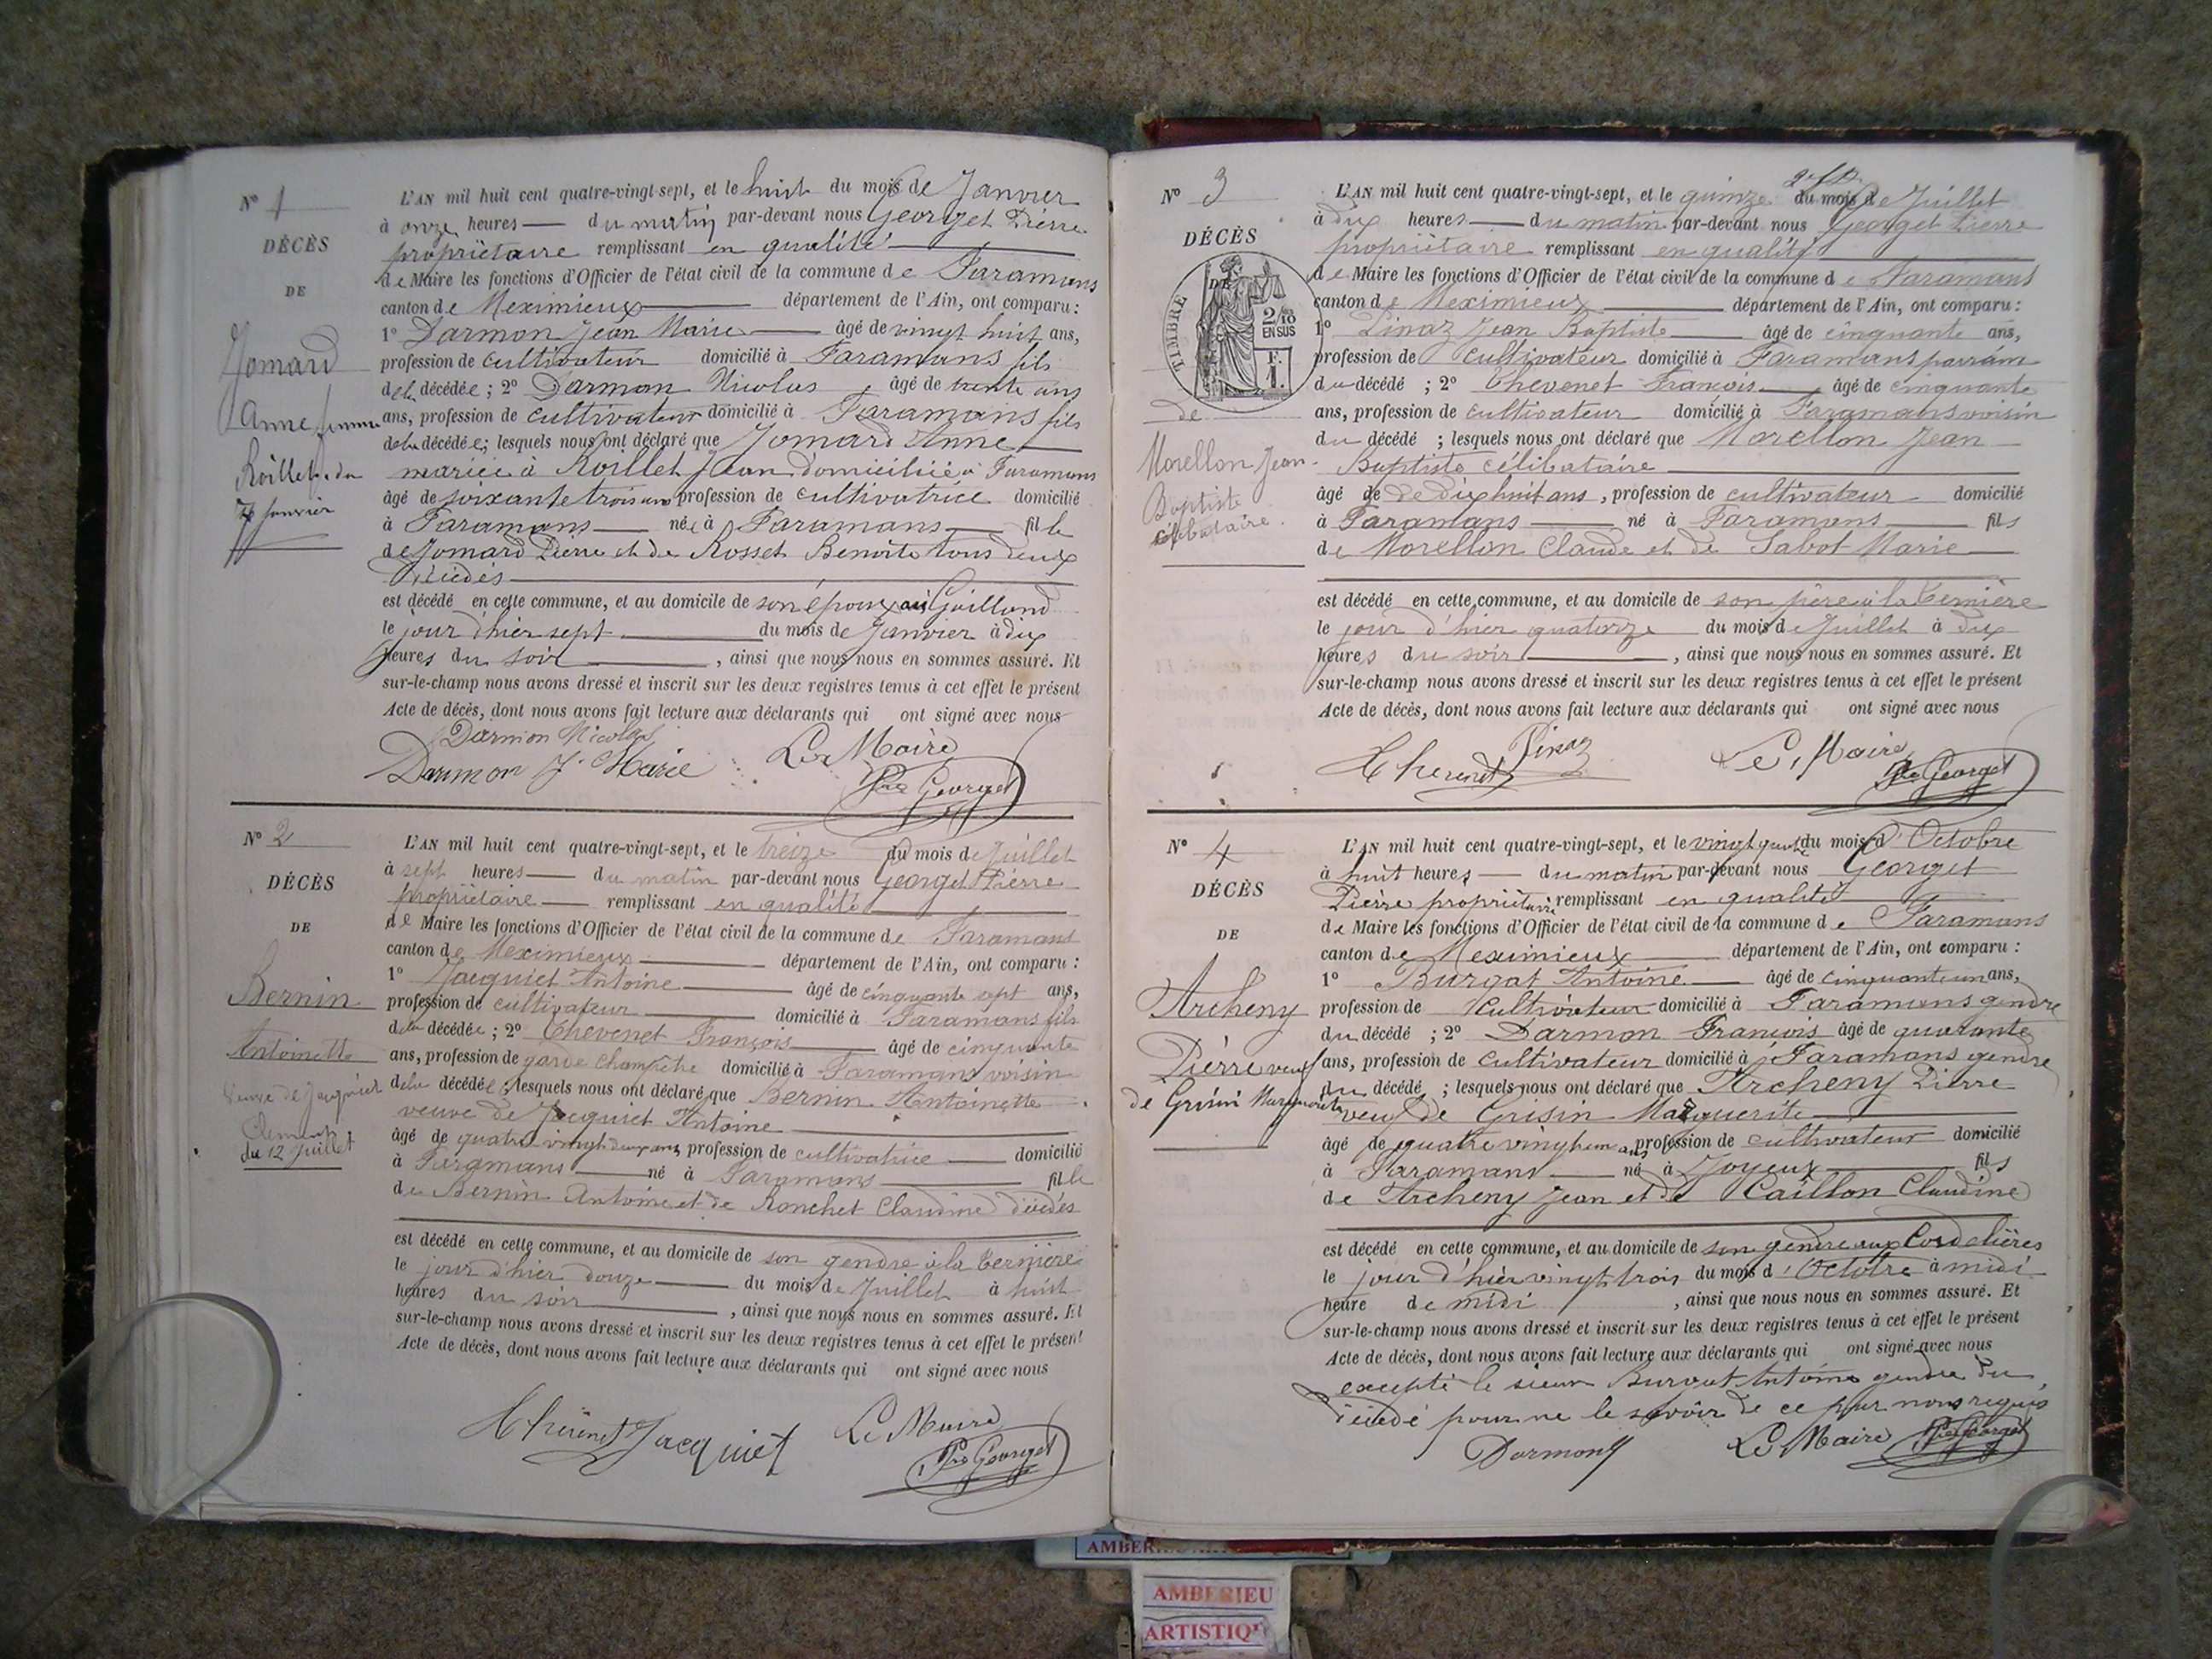 N° 1
DÉCÈS
DE
Jomard
Anne femme
Roillet du
7 Janvier
L'AN mil huit cent quatre-vingt-sept, et le huit du mois de Janvier
à onze heures — du matin par-devant nous Georget Pierre
propriétaire remplissant en qualité
de Maire les fonctions d'Officier de l'état civil de la commune de Faramans
canton de Meximieux département de l'Ain, ont comparu :
1° Darmon Jean Marie âgé de vingt huit ans,
profession de cultivateur domicilié à Faramans fils
de la décédée ; 2° Darmon Nicolas, âgé de trente ans
ans, profession de cultivateur domicilié à Faramans fils
de la décédée ; lesquels nous ont déclaré que Jomard Anne
mariée à Roillet Jean domiciliée à Faramans
âgé de soixante trois ans profession de cultivatrice domicilié
à Faramans née à Faramans fille
de Jomard Pierre et de Rosset Benoite tous deux
décédés
est décédé en cette commune, et au domicile de son époux au Gaillond
le jour d'hier sept du mois de Janvier à dix
heures du soir, ainsi que nous nous en sommes assuré. Et
sur-le-champ nous avons dressé et inscrit sur les deux registres tenus à cet effet le présent
Acte de décès, dont nous avons fait lecture aux déclarants qui ont signé avec nous
Darmon Nicolas
Darmon J. Marie Le Maire
Pre Georget
N° 2
DÉCÈS
DE
Bernin
Antoinette
veuve de Jacquiet
Clément
du 12 Juillet
L'AN mil huit cent quatre-vingt-sept, et le treize du mois de Juillet
à sept heures — du matin par-devant nous Georget Pierre
propriétaire remplissant en qualité
de Maire les fonctions d'Officier de l'état civil de la commune de Faramans
canton de Meximieux département de l'Ain, ont comparu :
1° Jacquiet Antoine âgé de cinquante sept ans,
profession de cultivateur domicilié à Faramans fils
de la décédée ; 2° Chevenet François âgé de cinquante
ans, profession de garde champêtre domicilié à Faramans voisin
de la décédée ; lesquels nous ont déclaré que Bernin Antoinette
veuve de Jacquiet Antoine
âgé de quatre vingt deux ans profession de cultivatrice domicilié
à Faramans né à Faramans fille
de Bernin Antoine et de Ronchet Claudine décédés
est décédé en cette commune, et au domicile de son gendre à la Ternière
le jour d'hier douze du mois de Juillet à huit
heures du soir, ainsi que nous nous en sommes assuré. Et
sur-le-champ nous avons dressé et inscrit sur les deux registres tenus à cet effet le présent
Acte de décès, dont nous avons fait lecture aux déclarants qui ont signé avec nous
Chevenet Jacquiet Le Maire
Pre Georget
N° 3
DÉCÈS
DE
TIMBRE
2/10
EN SUS
F.
1.
de
Morellon Jean
Baptiste
célibataire.
L'AN mil huit cent quatre-vingt-sept, et le quinze du mois de Juillet
à dix heures — du matin par-devant nous Georget Pierre
propriétaire remplissant en qualité
de Maire les fonctions d'Officier de l'état civil de la commune de Faramans
canton de Meximieux département de l'Ain, ont comparu :
1° Pinaz Jean Baptiste âgé de cinquante ans,
profession de cultivateur domicilié à Faramans parram
du décédé ; 2° Chevenet François âgé de cinquante
ans, profession de cultivateur domicilié à Faramans voisin
du décédé ; lesquels nous ont déclaré que Morellon Jean
Baptiste célibataire
âgé de de dix huit ans, profession de cultivateur domicilié
à Faramans né à Faramans fils
de Morellon Claude et de Sabot Marie
est décédé en cette commune, et au domicile de son père à la Ternière
le jour d'hier quatorze du mois de Juillet à dix
heures du soir, ainsi que nous nous en sommes assuré. Et
sur-le-champ nous avons dressé et inscrit sur les deux registres tenus à cet effet le présent
Acte de décès, dont nous avons fait lecture aux déclarants qui ont signé avec nous
Chevenet Pinaz Le Maire
Pre Georget
N° 4
DÉCÈS
DE
Archeny
Pierre veuf
de Grisin Marguerite
L'AN mil huit cent quatre-vingt-sept, et le vingt quatre du mois d'Octobre
à huit heures — du matin par-devant nous Georget
Pierre propriétaire remplissant en qualité
de Maire les fonctions d'Officier de l'état civil de la commune de Faramans
canton de Meximieux département de l'Ain, ont comparu :
1° Burgat Antoine âgé de cinquante un ans,
profession de Cultivateur domicilié à Faramans gendre
du décédé ; 2° Darmon François âgé de quarante
ans, profession de cultivateur domicilié à Faramans gendre
du décédé ; lesquels nous ont déclaré que Archeny Pierre
veuf de Grisin Marguerite
âgé de quatre vingt un ans profession de cultivateur domicilié
à Faramans né à Joyeux fils
de Archeny Jean et de Caillon Claudine
est décédé en cette commune, et au domicile de son gendre aux Cordelières
le jour d'hier vingt trois du mois d'Octobre à midi
heure de midi, ainsi que nous nous en sommes assuré. Et
sur-le-champ nous avons dressé et inscrit sur les deux registres tenus à cet effet le présent
Acte de décès, dont nous avons fait lecture aux déclarants qui ont signé avec nous
excepté le sieur Burgat Antoine gendre du
décédé pour ne le savoir de ce par nous requis
Darmon Le Maire Pre Georget
AMBERIEU
AMBERIEU
ARTISTIQUE